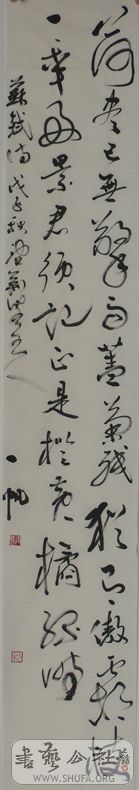 荷盡已無擎雨蓋菊殘猶有傲霜枝
一年好景君須記正是橙黃橘綠時
蘇軾詩戊子秋
一帆
書藝公社
WWW.SHUFA.ORG